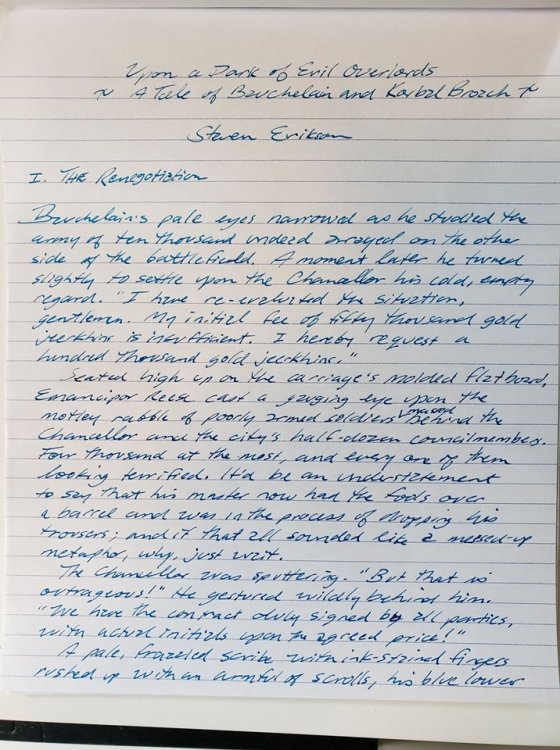 Upon a Dark of Evil Overlords
~ A Tale of Bauchelain and Korbal Broach ~
Steven Erikson
I. The Renegotiation
Bauchelain's pale eyes narrowed as he studied the
army of ten thousand undead arrayed on the other
side of the battlefield. A moment later he turned
slightly to settle upon the Chancellor his cold, empty
regard. "I have re-evaluated the situation,
gentlemen. My initial fee of fifty thousand gold
jeerkhins is insufficient. I hereby request a
hundred thousand gold jeerkhins."
Seated high up on the carriage's molded flatboard,
Emancipor Reese cast a gauging eye upon the
motley rabble of poorly armed soldiers massed behind the
Chancellor and the city's half-dozen councilmembers.
Four thousand at the most, and every one of them
looking terrified. It'd be an understatement
to say that his master now had the fools over
a barrel and was in the process of dropping his
trousers; and if that all sounded like a messed-up
metaphor, why, just wait.
The Chancellor was sputtering. "But that is
outrageous!" He gestured wildly behind him.
"We have the contract duly signed by all parties,
with actual initials upon the agreed price!"
A pale, frazzled scribe with ink-stained fingers
rushed up with an armful of scrolls, his blue lower